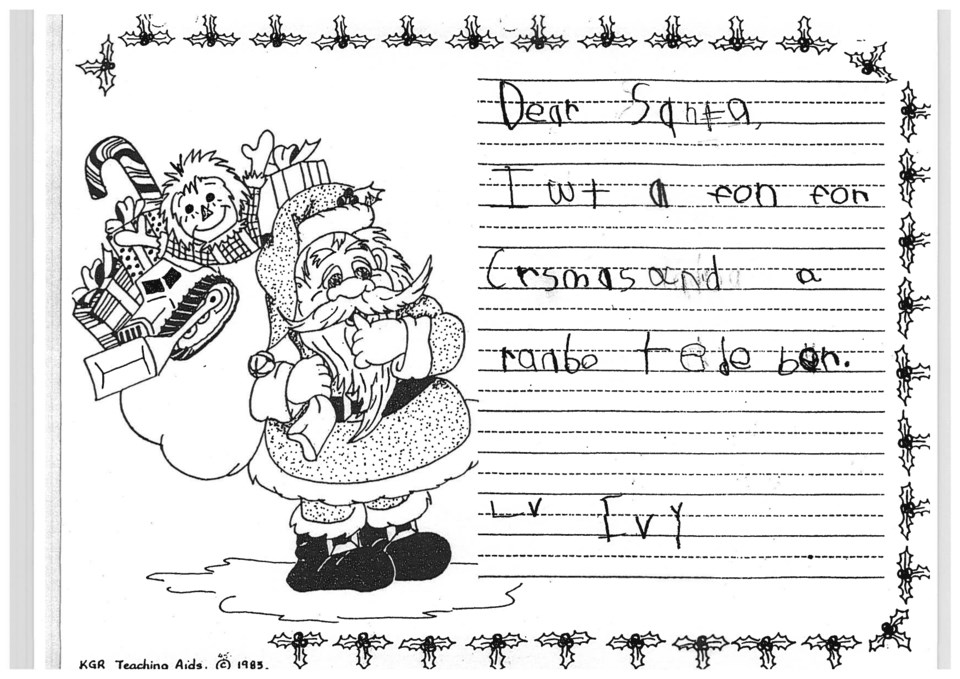 Dear Santa,
I wt a fon for
Crsmas and a
ranbo tede ber.
Lv Ivy
KGR Teaching Aids. © 1985.